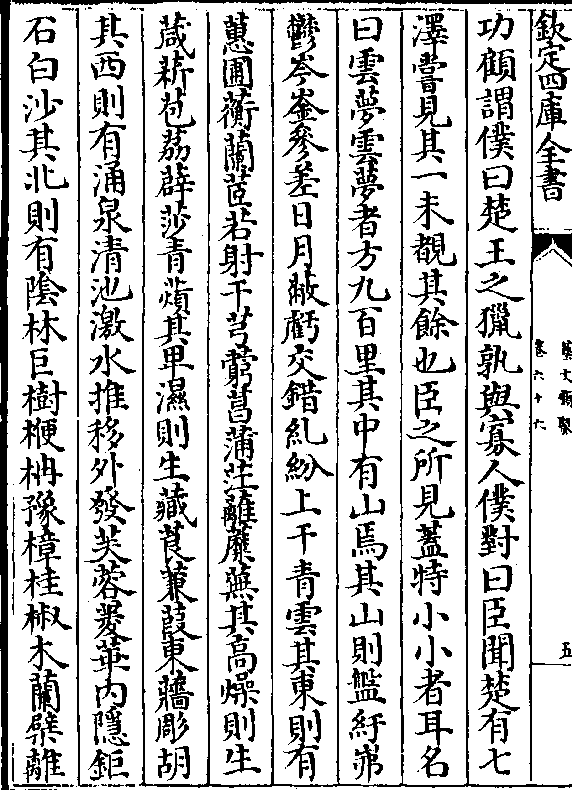 欽定四庫全書
藝文類聚
卷六十六
五
功顧謂僕曰楚王之獵孰與寡人僕對曰臣聞楚有七
澤嘗見其一未覩其餘也臣之所見蓋特小小者耳名
曰雲夢雲夢者方九百里其中有山焉其山則盤紆岪
鬱岑崟參差日月蔽虧交錯糺紛上干青雲其東則有
蕙圃蘅蘭茝若射干芎藭菖蒲茳蘺蘪蕪其高燥則生
葴菥苞荔薜莎青薠其卑濕則生藏莨蒹葭東蘠彫胡
其西則有涌泉清池激水推移外發芙蓉菱華内隱鉅
石白沙其北則有陰林巨樹楩枏豫樟桂椒木蘭檗離